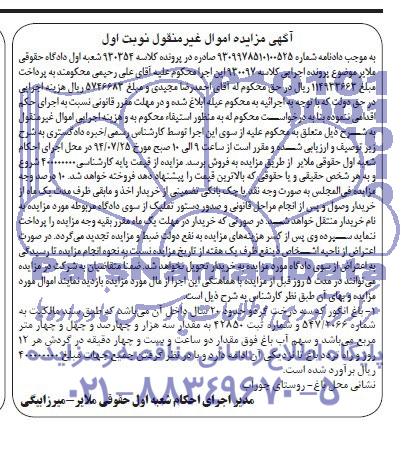 آگهی مزایده اموال غیرمنقول نوبت اول
به موجب دادنامه شماره ۹۳۰۹۹۷۸۵۱۰۱۰۰۵۲۵ صادره در پرونده کلاسه ۹۳۰۳۵۴ شعبه اول دادگاه حقوقی
ملایر موضوع پرونده اجرایی کلاسه ۹۳۰۰۹۷ این اجرا محکوم علیه آقای علی رحیمی محکومند به پرداخت
مبلغ ریال در حق محکوم له آقای احمدرضا مجیدی و مبلغ ۵۷۴۶۶۸۳ ریال هزینه اجرایی
در حق دولت که با توجه به اجرائیه به محکوم علیه ابلاغ شده و در مهلت مقرر قانونی نسبت به اجرای حکم
اقدامی ننموده بنا به درخواست محکوم له به منظور استیفاء محکوم به و هزینه اجرایی اموال غیرمنقول
به شرح ذیل متعلق به محکوم علیه از سوی این اجرا توسط کارشناس رسمی/خبره دادگستری به شرح
زیر توصیف و ارزیابی شده و مقرر است از ساعت ۹ الی ۱۰ صبح مورخ ۹۴/۰۷/۲۵ در محل اجرای احکام
شعبه اول حقوقی ملایر از طریق مزایده به فروش برسد. مزایده از قیمت پایه کارشناسی ۴۰۰۰۰۰۰۰۰ شروع
و به هر شخص حقیقی و یا حقوقی که بالاترین قیمت را پیشنهاد دهد فروخته خواهد شد. ۱۰ درصد وجه
مزایده فی‌المجلس به صورت وجه نقد یا چک بانکی تضمینی از خریدار اخذ و مابقی ظرف مدت یک ماه از
خریدار وصول و پس از انجام مراحل قانونی و صدور دستور تملیک از سوی دادگاه مربوطه مورد مزایده به
نام خریدار منتقل خواهد شد. در صورتی که خریدار در مهلت یک ماه مقرر بقیه وجه مزایده را پرداخت
ننماید سپرده وی پس از کسر هزینه‌های مزایده به نفع دولت ضبط و مزایده تجدید می‌گردد. در صورت
اعتراض از ناحیه اشخاص ذینفع ظرف یک هفته از تاریخ مزایده نسبت به نحوه انجام مزایده تا رسیدگی
به اعتراض از سوی دادگاه مورد مزایده به خریدار تحویل نخواهد شد. ضمنا متقاضیان به شرکت در مزایده
می‌توانند در مدت ۵ روز قبل از مزایده با هماهنگی این اجرا از مال مورد مزایده بازدید نمایند اموال مورد
مزایده و بهای آن طبق نظر کارشناس به شرح ذیل است.
۱- باغ انگور که سه درخت گردو حدود ۲۰ سال داخل آن می‌باشد که طبق سند مالکیت به
شماره ۵۴۷/۲۰۶۶ و شماره ثبت ۴۲۸۵۰ به مقدار سه هزار و چهارصد و چهل و چهار متر
مربع می‌باشد و سهم آب باغ فوق مقدار دو ساعت و بیست و چهار دقیقه در گردش هر ۱۲
روز و راه تردد باغ تا نزدیکی آن ادامه دارد و با در نظر گرفتن جمیع جهات مبلغ ۴۰۰۰۰۰۰۰۰
ریال برآورد شده است.
نشانی محل باغ- روستای جوراب
مدیر اجرای احکام شعبه اول حقوقی ملایر- میرزابیگی
۰۲۱-۸۸۳۴۹۶۷۰-۵